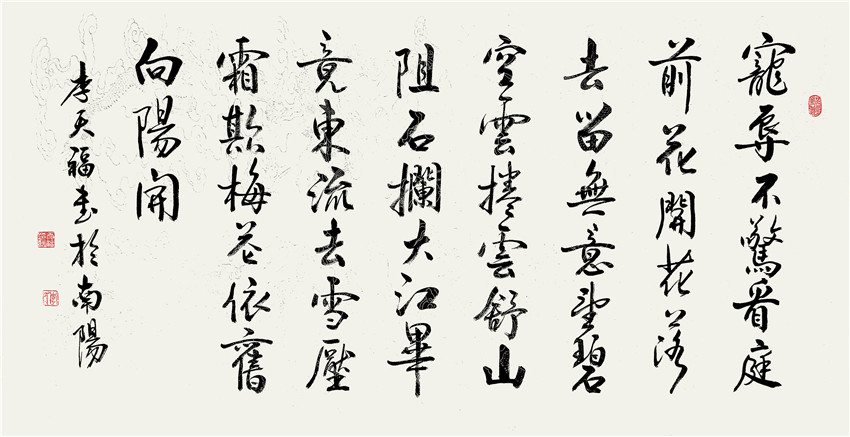 寵辱不驚看庭
前花開花落
去留無意望碧
空雲捲雲舒山
阻石攔大江畢
竟東流去雪壓
霜欺梅花依舊
向陽開
李天福書於南陽